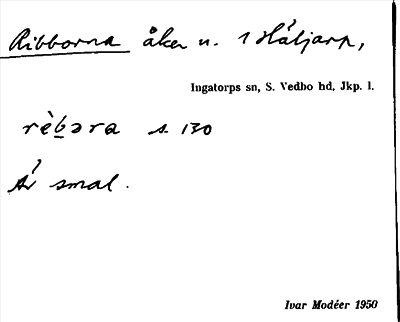 Ribborna åker n. 1 Häljarp,
Ingatorps sn, S. Vedbo hd, Jkp. l.
rèbəra s. 130
Är smal.
Ivar Modéer 1950